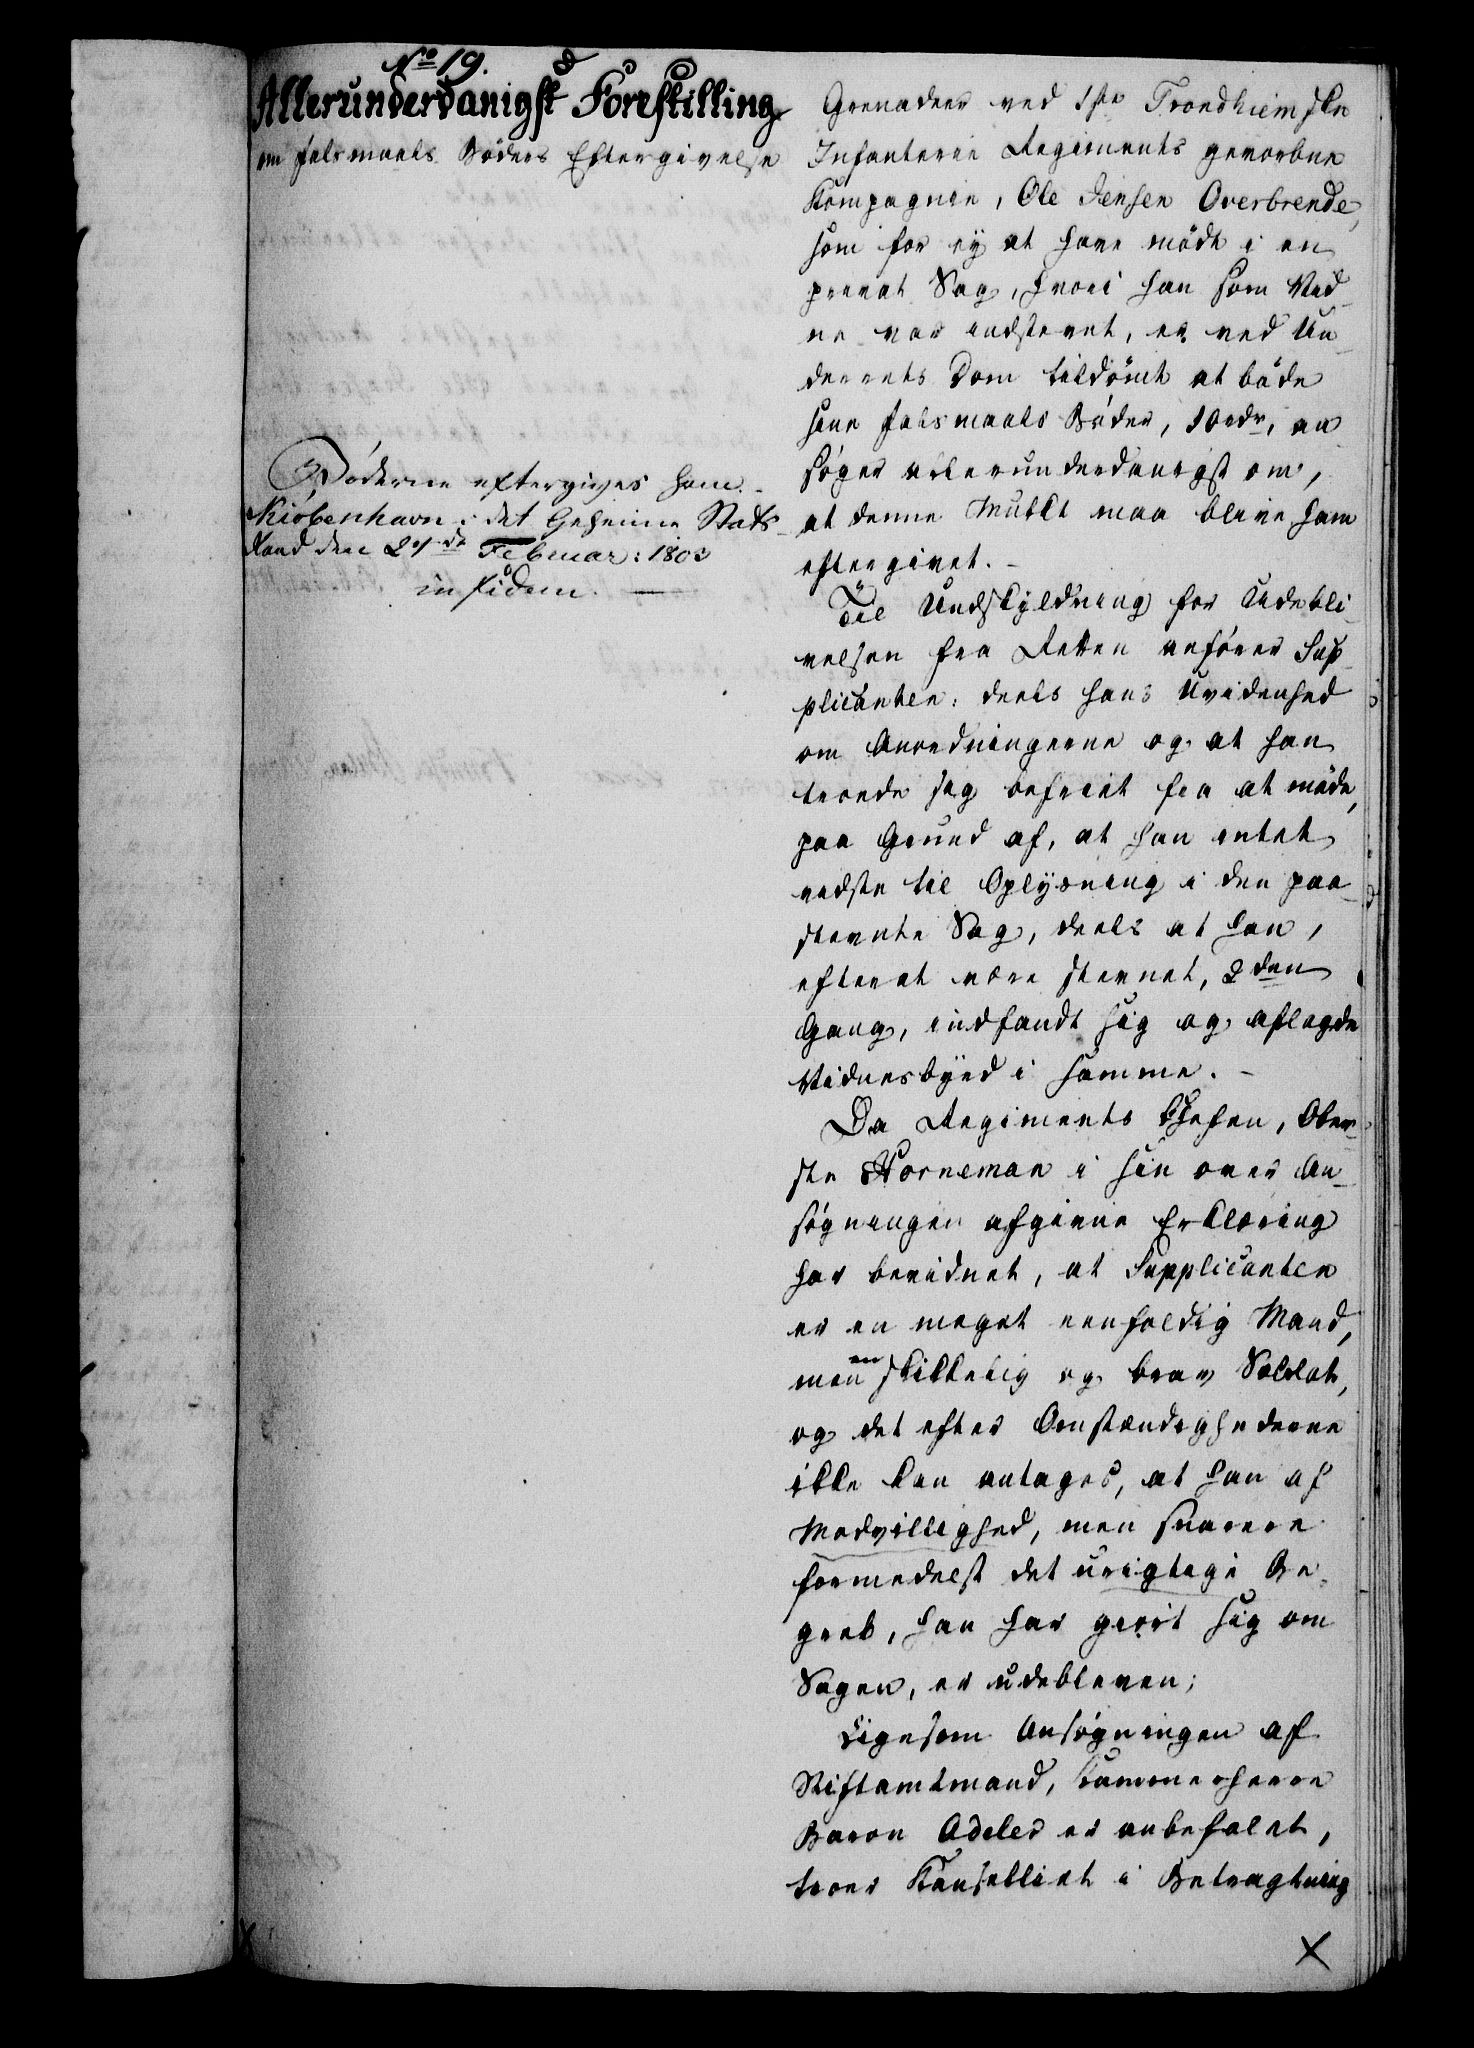 No 19.
Allerunderdanigst Forestilling
om Falsmaals Bøders Eftergivelse
Bøderne eftergives ham.
Kiøbenhavn i det Geheime Stats-
Raad den Februar: 1803
in fidem.
Grenadeer ved 1ste Trondhiemske
Infanterie Regiments gevorbne
Kompagnie, Ole Jensen Overbrende,
som for ey at have mødt i en
privat Sag, hvori han som Vid-
ne var indstevnt, er ved Un-
derrets Dom tildömt at böde
sine Falsmaals Bøder, 10 rdr, an-
søger allerunderdanigst om,
at denne Mulkt maa blive ham
eftergivet. -
Til Undskyldning for Udebli-
velsen fra Retten anfører Sup-
plicanten: deels hans Uvidenhed
om Anordningerne og at han
troede sig befriet fra at møde,
paa Grund af, at han intet
vidste til Oplysning i den paa-
stevnte Sag, deels at han,
efter at være stevnet, 2den
Gang, indfandt sig og aflagde
Vidnesbyrd i samme. -
Da Regiments Chefen, Ober-
ste Horneman i sin over An-
søgningen afgivne Erklæring
har bevidnet, at Supplicanten
er en meget eenfoldig Mand,
men en skikkelig og brav Soldat,
og det efter Omstændighederne
ikke kan antages, at han af
Modvillighed, men snarere
formedelst det urigtige Be-
greb, han har giort sig om
Sagen, er udebleven;
Ligesom Ansøgningen af
Stiftamtmand, Kammerherre
Baron Adeler er anbefalet,
troer Kanselliet i Betragtning